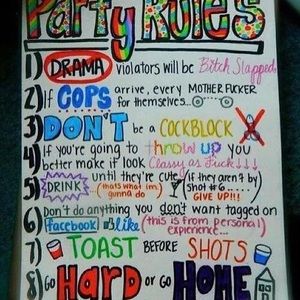 Party Rules
1) DRAMA violators will be Bitch Slapped
2) If COPS arrive, every MOTHER FUCKER
for themselves...
3) DON'T be a COCKBLOCK
4) If you're going to throw up you
better make it look Classy as Fuck!!!
5) DRINK... until they're cute (if they aren't by
(thats what im gonna do shot #6.....
GIVE UP!!!)
6) Don't do anything you don't want tagged on
facebook like (this is from personal
experience...
7) TOAST BEFORE SHOTS
8) GO HARD OR GO HOME